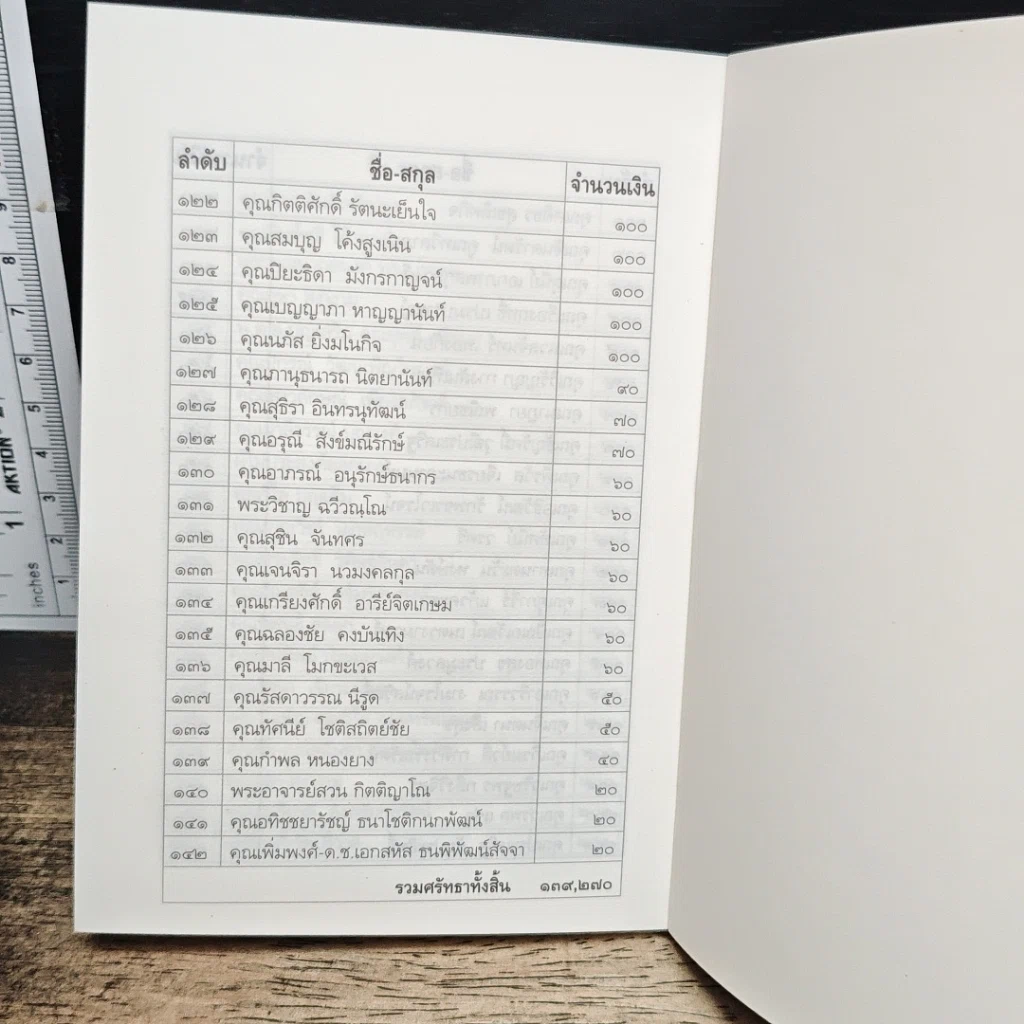 ลำดับ ชื่อ-สกุล จำนวนเงิน
๑๒๒ คุณกิตติศักดิ์ รัตนะเย็นใจ ๑๐๐
๑๒๓ คุณสมบุญ โค้งสูงเนิน ๑๐๐
๑๒๔ คุณปิยะธิดา มังกรกาญจน์ ๑๐๐
๑๒๕ คุณเบญญาภา หาญญานันท์ ๑๐๐
๑๒๖ คุณนภัส ยิ่งมโนกิจ ๑๐๐
๑๒๗ คุณภานุธนารถ นิตยานันท์ ๙๐
๑๒๘ คุณสุธิรา อินทรนุพัฒน์ ๗๐
๑๒๙ คุณอรุณี สังข์มณีรักษ์ ๗๐
๑๓๐ คุณอาภรณ์ อนุรักษ์ธนากร ๖๐
๑๓๑ พระวิชาญ ฉวีวณฺโณ ๖๐
๑๓๒ คุณสุชิน จันทศร ๖๐
๑๓๓ คุณเจนจิรา นวมงคลกุล ๖๐
๑๓๔ คุณเกรียงศักดิ์ อารีย์จิตเกษม ๖๐
๑๓๕ คุณฉลองชัย คงบันเทิง ๖๐
๑๓๖ คุณมาลี โมกขะเวส ๖๐
๑๓๗ คุณรัสดาวรรณ นีรูด ๕๐
๑๓๘ คุณทัศนีย์ โชติสถิตย์ชัย ๕๐
๑๓๙ คุณกำพล หนองยาง ๔๐
๑๔๐ พระอาจารย์สวน กิตติญาโณ ๒๐
๑๔๑ คุณอทิชชยารัชญ์ ธนาโชติกนกพัฒน์ ๒๐
๑๔๒ คุณเพิ่มพงศ์-ด.ช.เอกสหัส ธนพิพัฒน์สัจจา ๒๐
รวมศรัทธาทั้งสิ้น ๑๓๙,๒๗๐
AKTION
inches
1 2 3 4 5 6 7 8 9